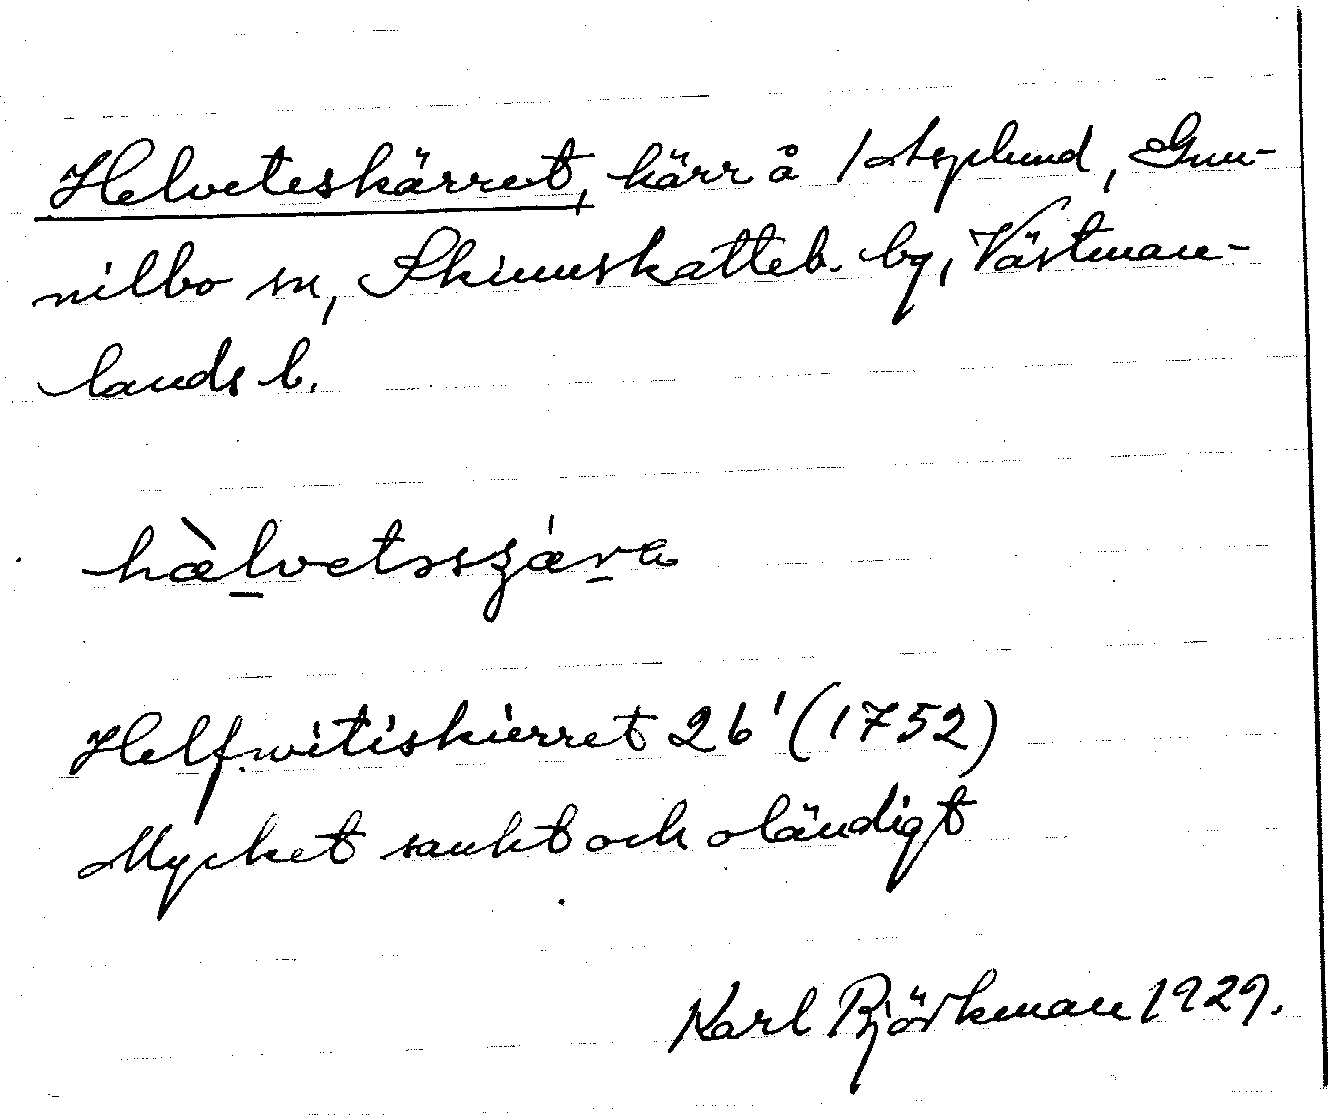 Helveteskärret, kärr å 1 Asplund, Gun-
nilbo sn, Skinnskatteb. bg, Västman-
lands l.
hæ̀lvetsszǽra
Helfwitiskierret 26' (1752)
Mycket sankt och oländigt
Karl Björkman 1929.